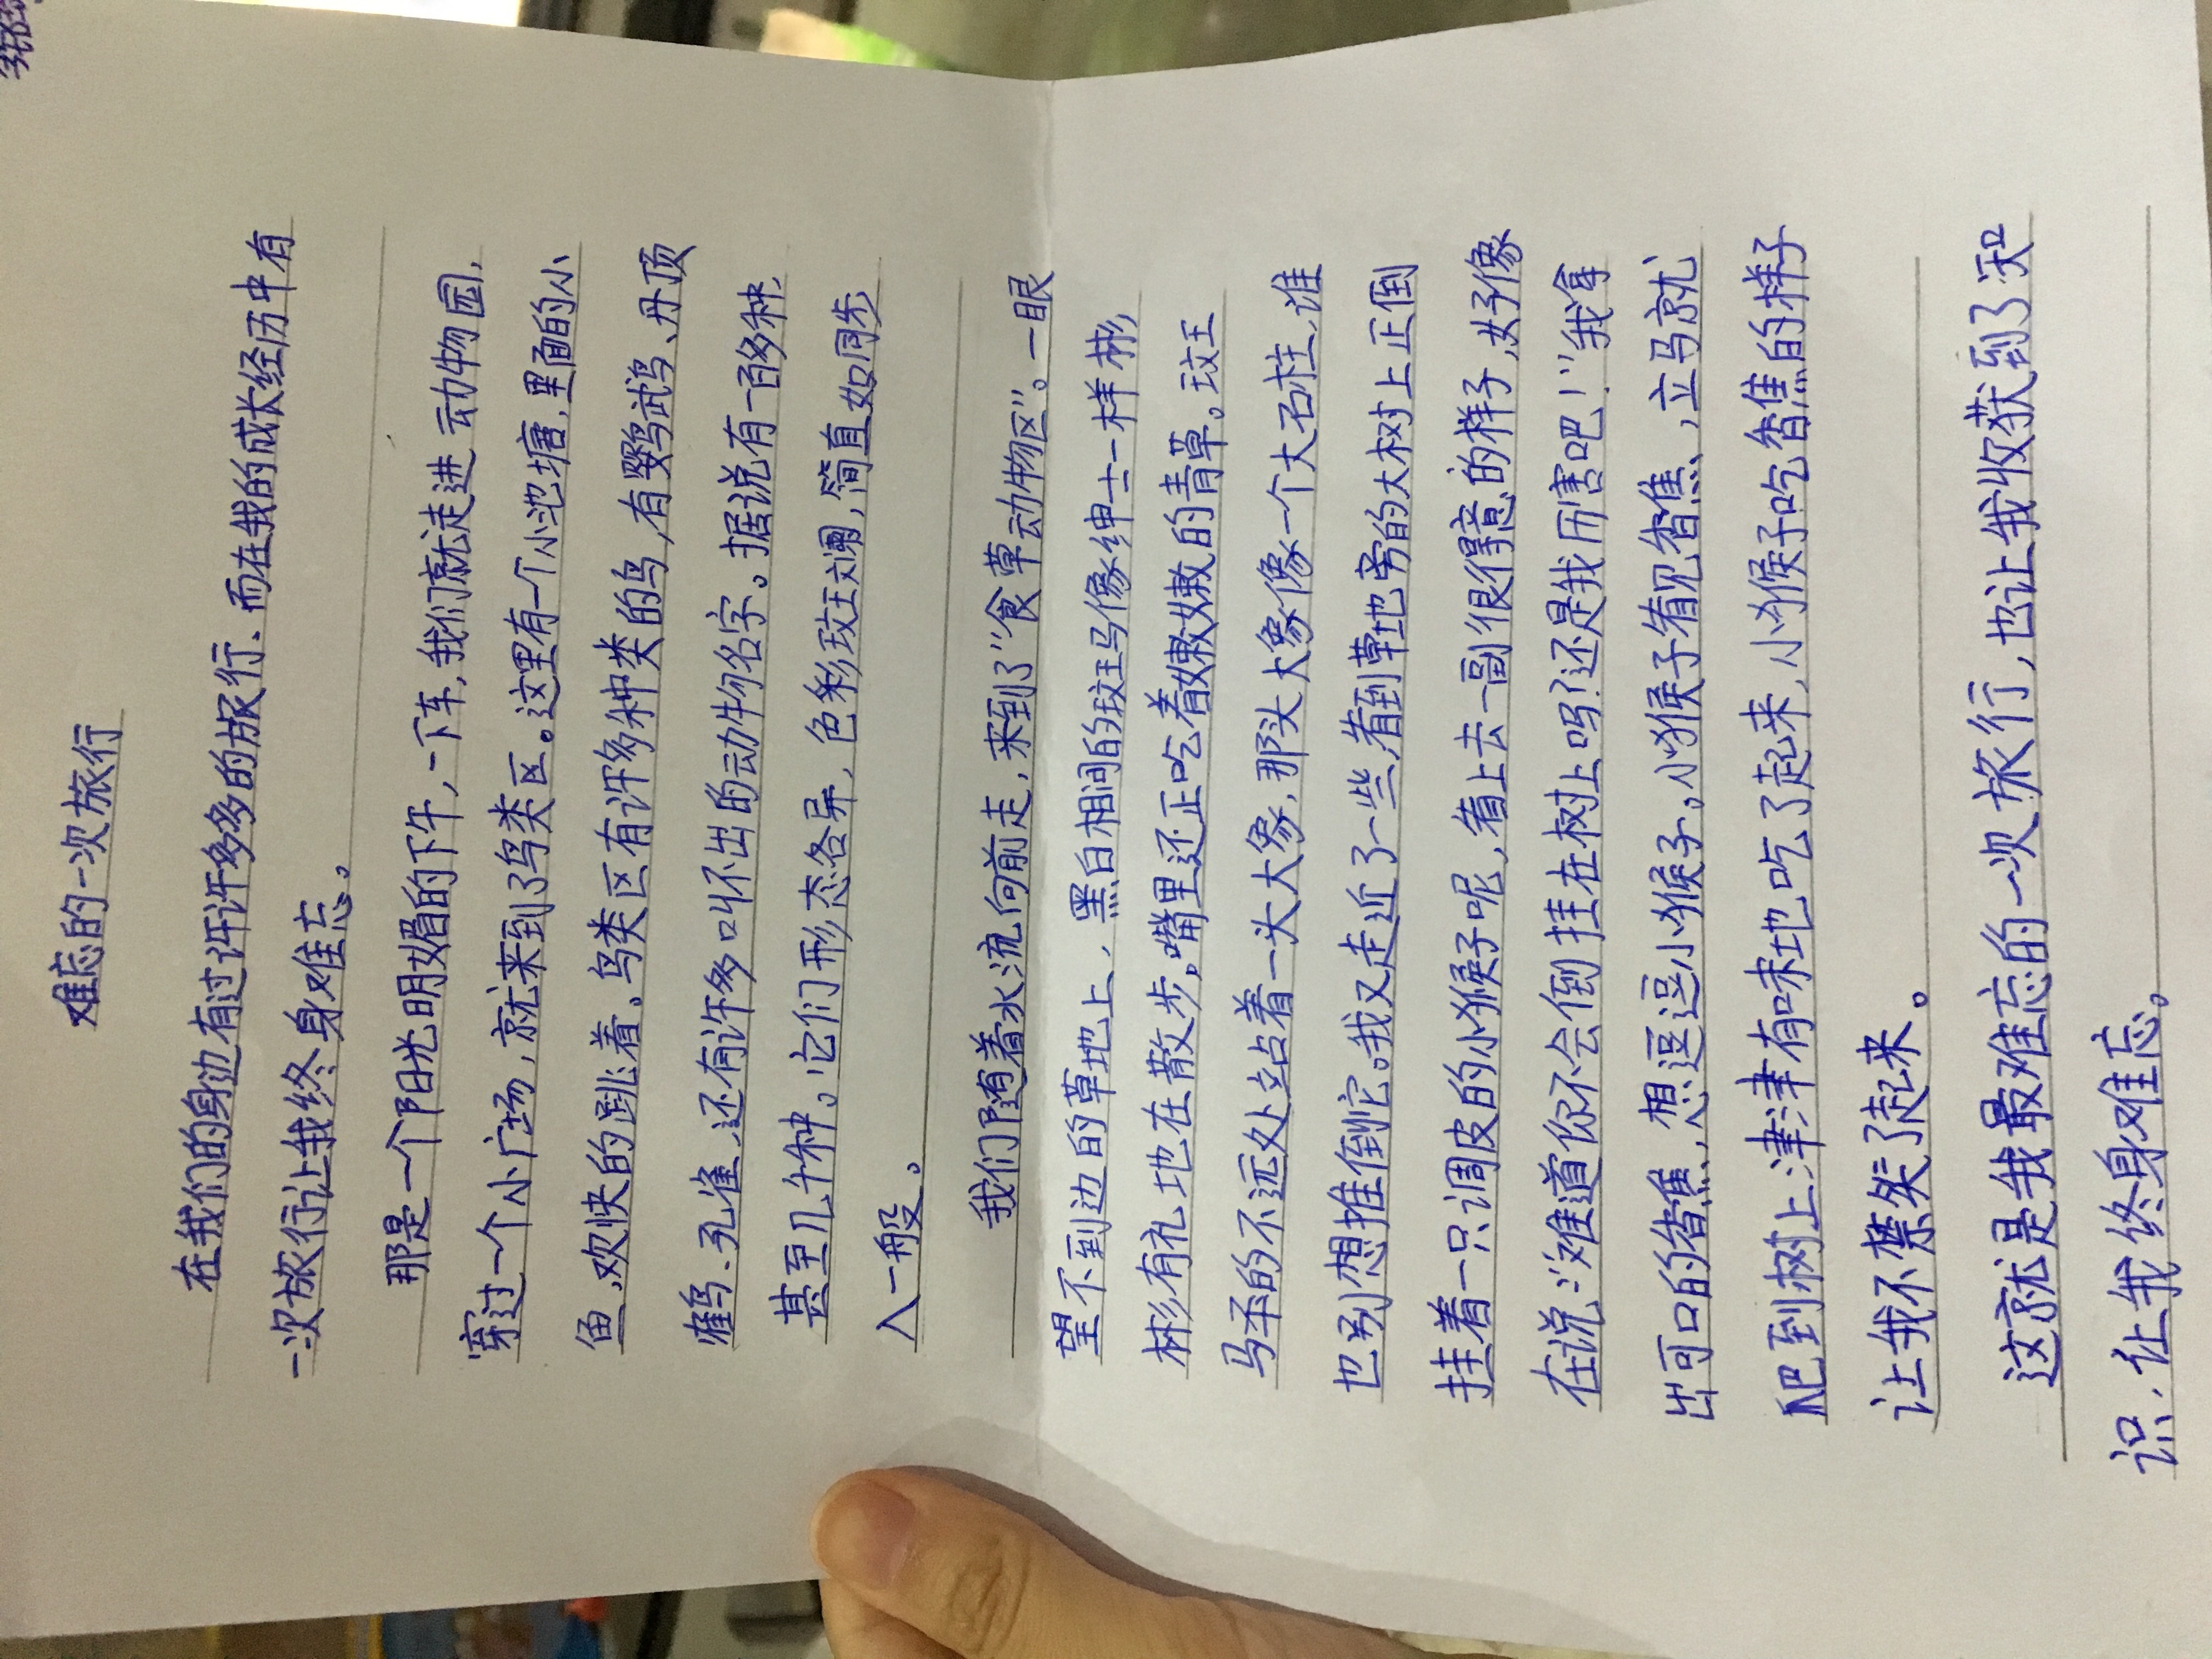 难忘的一次旅行
在我们的身边有过许许多多的旅行、而在我的成长经历中有
一次旅行让我终身难忘。
那是一个阳光明媚的下午,一下车,我们就走进动物园,
穿过一个小广场,就来到了鸟类区。这里有一个小池塘,里面的小
鱼,欢快的跳着。鸟类区有许多种类的鸟,有鹦鹉、丹顶
鹤、孔雀,还有许多叫不出的动物名字。据说有一百多种,
甚至几千种。它们形态各异,色彩斑斓,简直如同步
入一般。
我们随着水流向前走,来到了"食草动物区"。一眼
望不到边的草地上,黑白相间的斑马像绅士一样彬
彬有礼地在散步,嘴里还正吃着嫩嫩的青草。斑
马不的不远处站着一头大象,那头大象像一个大石柱,谁
也别想推倒它。我又走近了一些,看到草地旁的大树上正倒
挂着一只调皮的小猴子呢,看上去一副很得意的样子,好像
在说:"难道你不会倒挂在树上吗?还是我历害吧!"我拿
出可口的香蕉,想逗逗小猴子。小猴子看见香蕉,立马就
爬到树上津津有味地吃了起来,小猴子吃香蕉的样子
让我不禁笑了起来。
这就是我最难忘的一次旅行,也让我收获到了知
识,让我终身难忘。